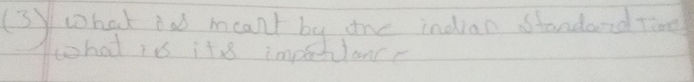 (3) What is meant by the indian Standard Time
what is its importance